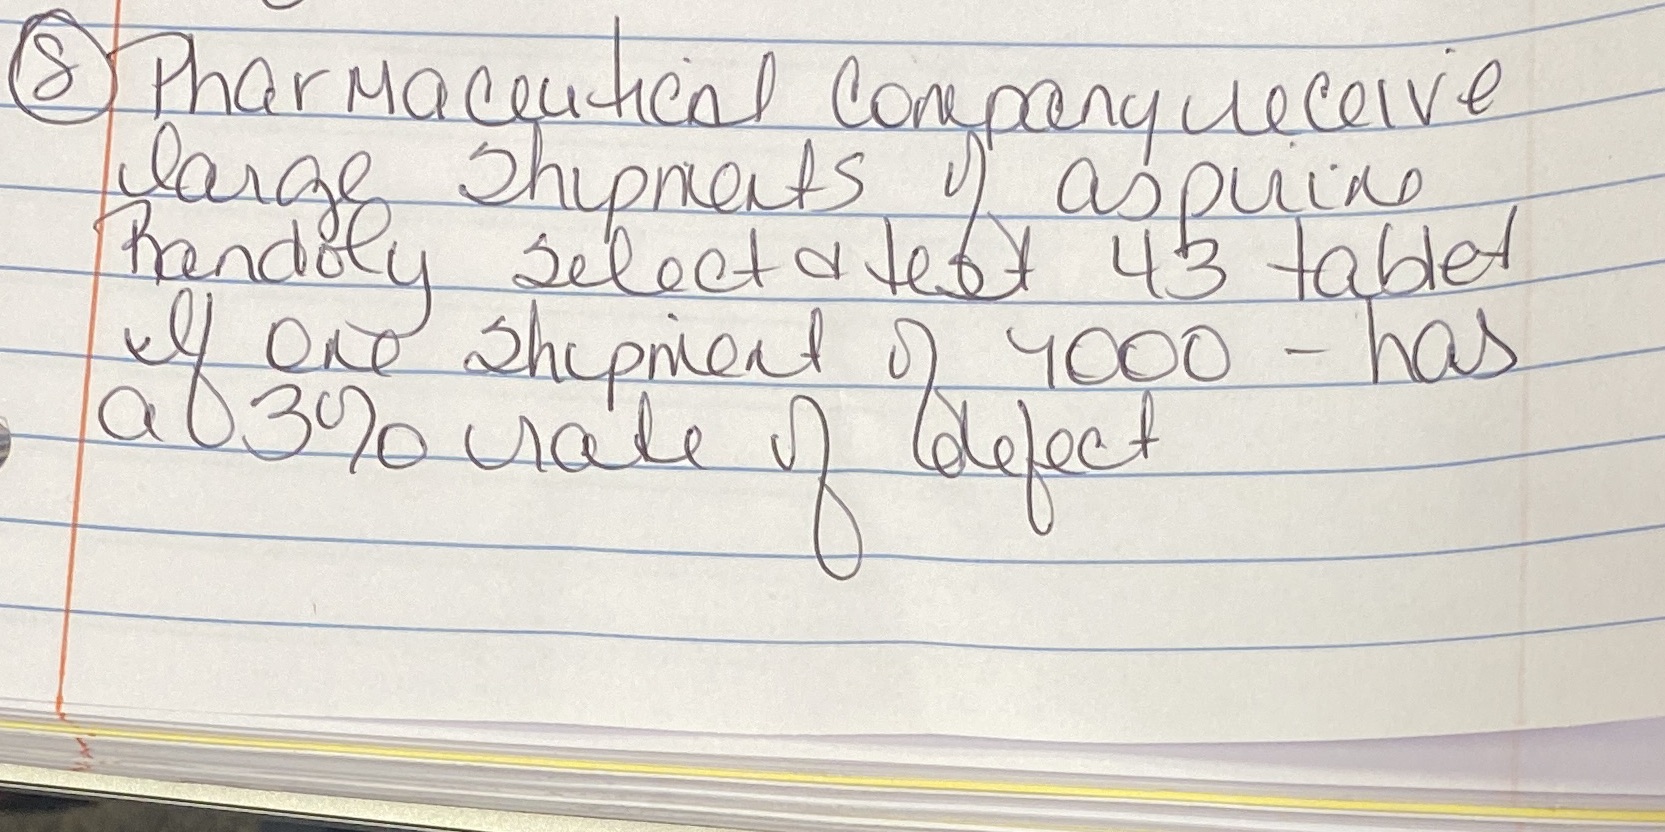 8 Pharmaceutical Company receive
large shipments of aspirins
Randoly select & test 43 tablet
If one shipment of 4000 - has
a 3% rate of defect